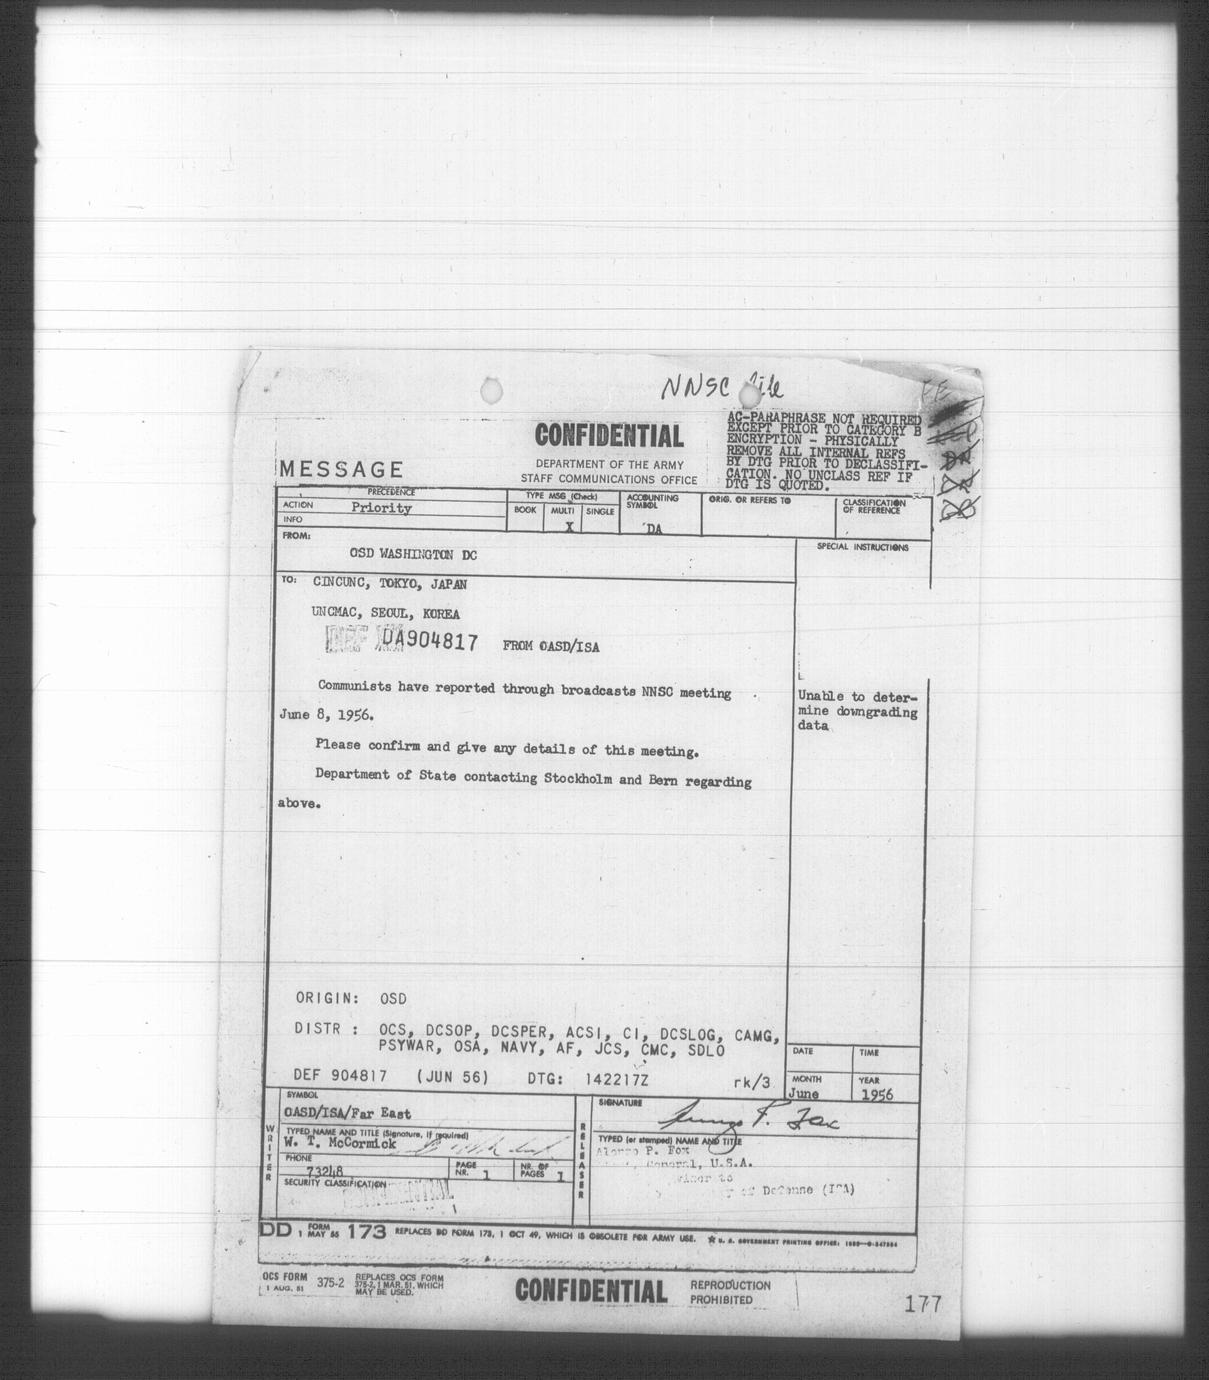 NNSC file
EE
CONFIDENTIAL
AC-PARAPHRASE NOT REQUIRED
EXCEPT PRIOR TO CATEGORY B
ENCRYPTION - PHYSICALLY
REMOVE ALL INTERNAL REFS
BY DTG PRIOR TO DECLASSIFI-
CATION. NO UNCLASS REF IF
DTG IS QUOTED.
MESSAGE
DEPARTMENT OF THE ARMY
STAFF COMMUNICATIONS OFFICE
PRECEDENCE
TYPE MSG (Check)
ACCOUNTING
SYMBOL
ORIG. OR REFERS TO
CLASSIFICATION
OF REFERENCE
ACTION Priority
BOOK MULTI SINGLE
INFO
X
DA
FROM:
OSD WASHINGTON DC
SPECIAL INSTRUCTIONS
TO: CINCUNC, TOKYO, JAPAN
UNCMAC, SEOUL, KOREA
DEF DA904817 FROM OASD/ISA
Communists have reported through broadcasts NNSC meeting
June 8, 1956.
Please confirm and give any details of this meeting.
Department of State contacting Stockholm and Bern regarding
above.
Unable to deter-
mine downgrading
data
ORIGIN: OSD
DISTR : OCS, DCSOP, DCSPER, ACSI, CI, DCSLOG, CAMG,
PSYWAR, OSA, NAVY, AF, JCS, CMC, SDLO
DEF 904817 (JUN 56) DTG: 142217Z rk/3
DATE TIME
MONTH YEAR
June 1956
WRITER
SYMBOL
OASD/ISA/Far East
TYPED NAME AND TITLE (Signature, if required)
W. T. McCormick
PHONE
73248
PAGE
NR. 1
NR. OF
PAGES 1
SECURITY CLASSIFICATION
CONFIDENTIAL
RELEASER
SIGNATURE
TYPED (or stamped) NAME AND TITLE
Alonzo P. Fox
General, U.S.A.
of Defense (ISA)
DD 1 FORM MAY 55 173 REPLACES DD FORM 173, 1 OCT 49, WHICH IS OBSOLETE FOR ARMY USE. ★ U. S. GOVERNMENT PRINTING OFFICE:
OCS FORM
1 AUG. 51
375-2
REPLACES OCS FORM
375-2, 1 MAR. 51, WHICH
MAY BE USED.
CONFIDENTIAL
REPRODUCTION
PROHIBITED
177